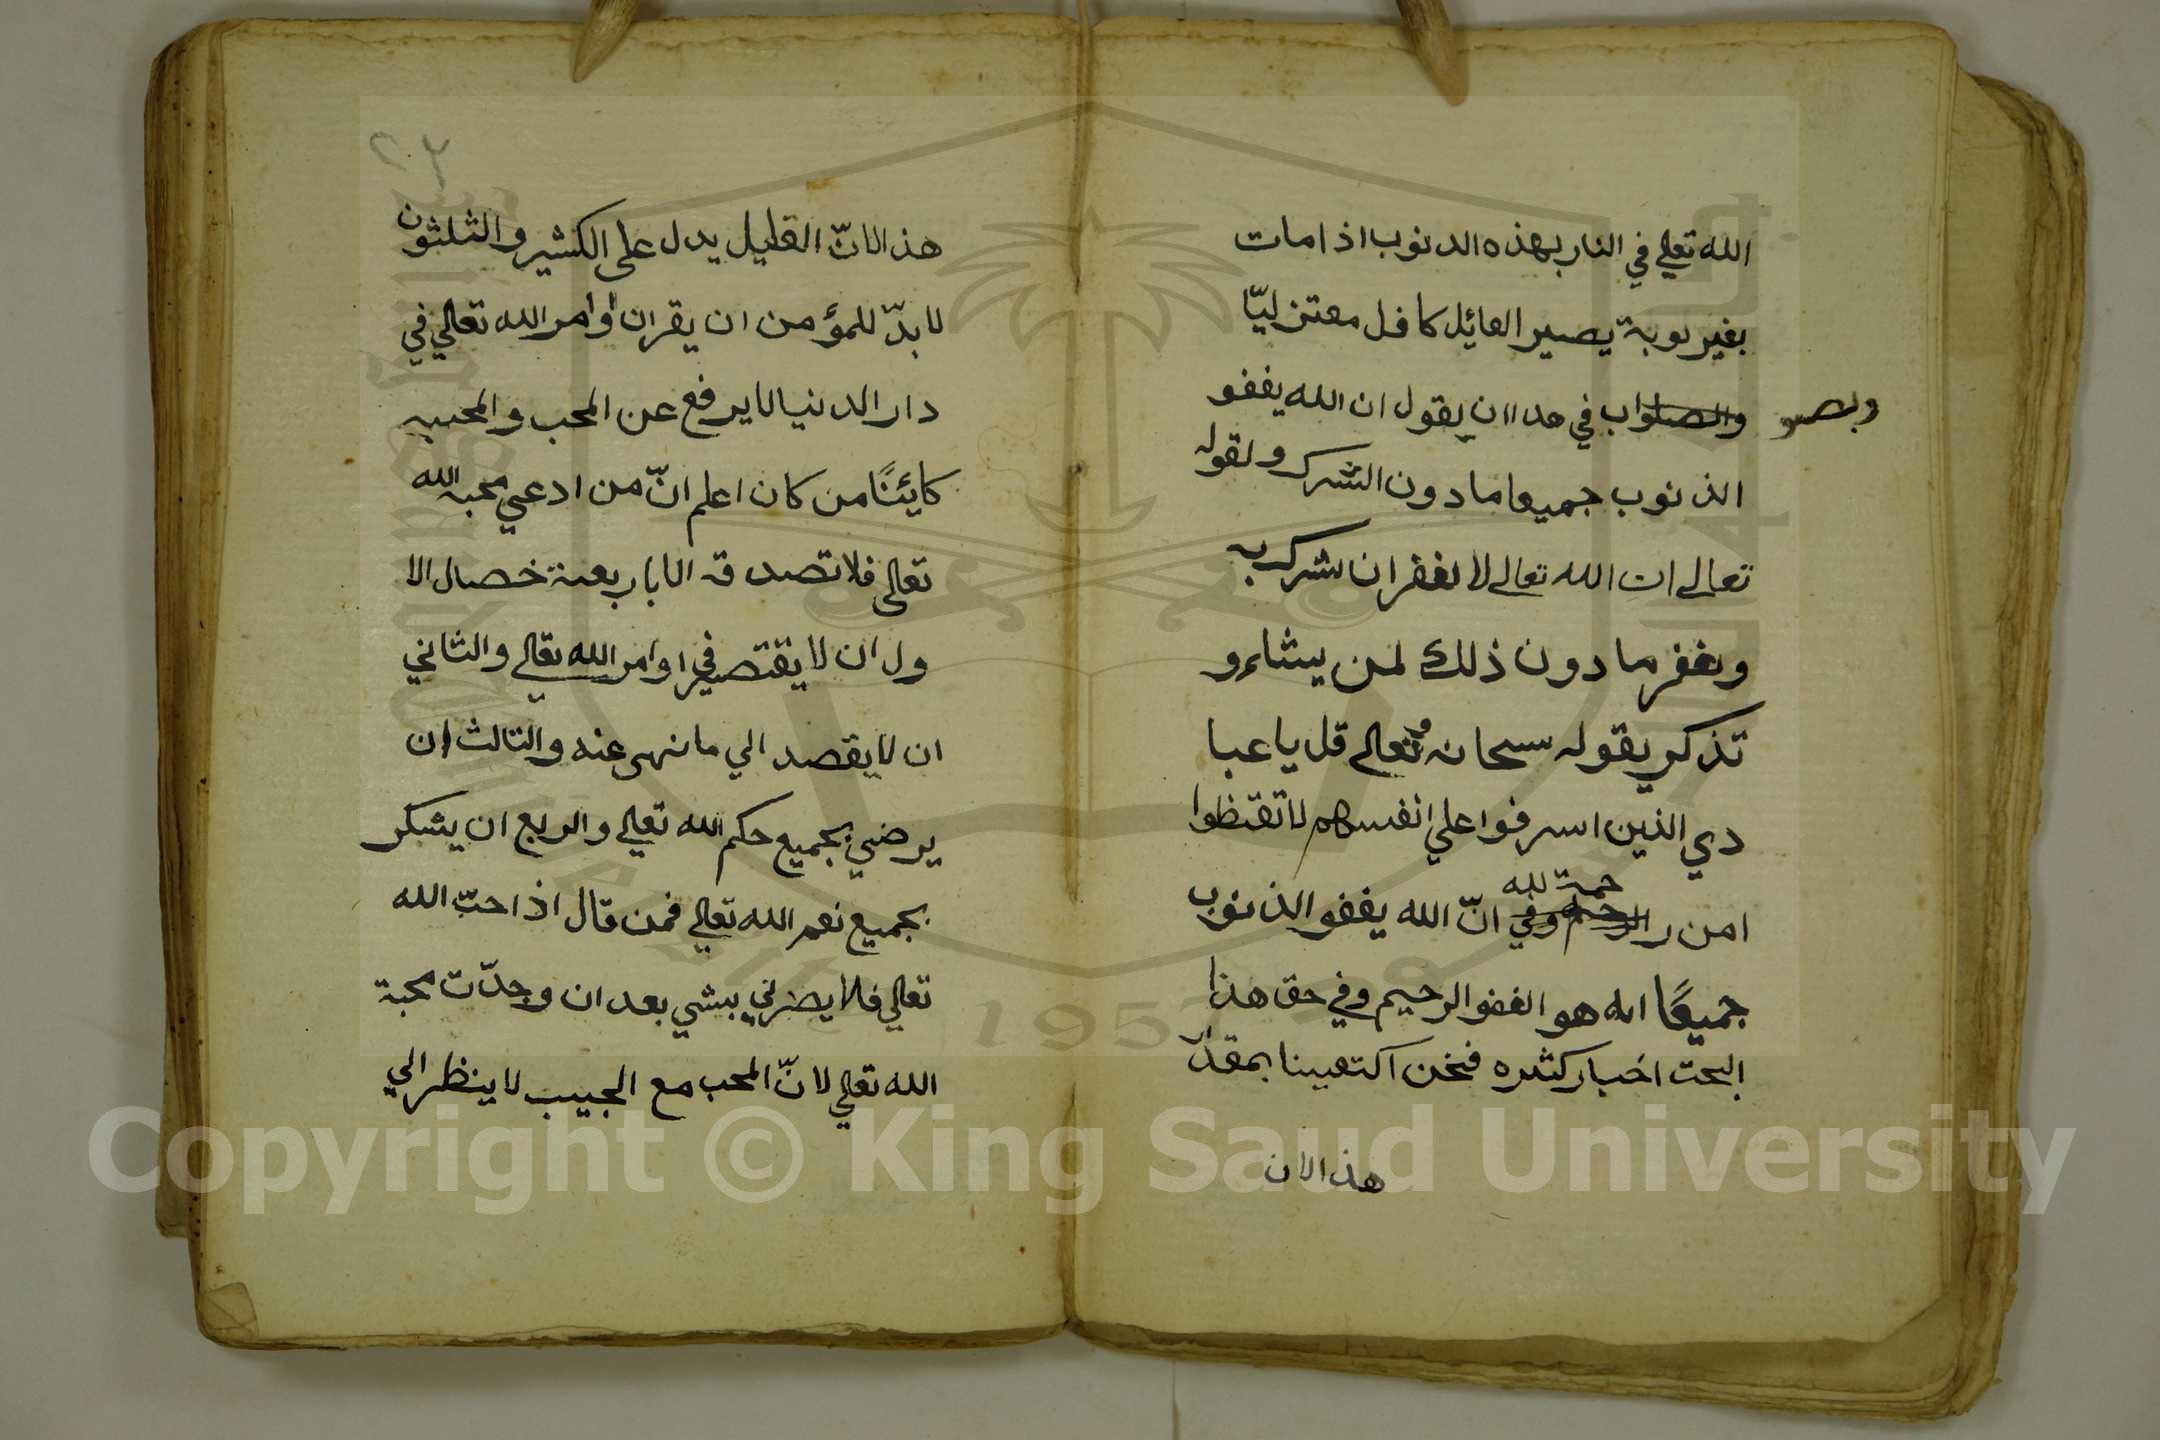 الله تعلي في النار بهذه الدنوب اذا مات
بغير توبة يصير القائل كافل معتزليّا
وبصير
والصلواب في هدا ان يقول ان الله يغفو
الذنوب جميعا ما دون الشرك ولقوله
تعالى ان الله تعالى لا يغفر ان يشرك به
ويغفر ما دون ذلك لمن يشاء و
تذكر يقوله سبحانه وتعالى قل يا عبا
دي الذين اسرفوا علي انفسهم لا تقنطوا
حمة لله
امن ر الرحيم وفي انّ الله يغفو الذنوب
جميعًا انه هو الغفو الرحيم وفي حق هذا
البحث اخبار كثيره فنحن اكتفينا بمقدار
هذ الان
٢٢
هذ الانّ القليل يدل على الكثير والثلثون
لا بدّ للمؤمن ان يقر ان اوامر الله تعالي في
دار الدنيا لا يرفع عن المحب والمحبيه
كايئنًا من كان اعلم انّ من ادعي محبة الله
تعالى فلا تصدقه الا باربعة خصال الا
ول ان لا يقتصر في اوامر الله تعالي والثاني
ان لا يقصد الي ما نهى عنه والثالث ان
يرضي بجميع حكم الله تعلي والربع ان يشكر
بجميع نعم الله تعلي فمن قال اذا احبّ الله
تعالي فلا يضرني بشي بعد ان وجدّت محبة
الله تعلي لانّ المحب مع الحبيب لا ينظر الي
Copyright © King Saud University
1957